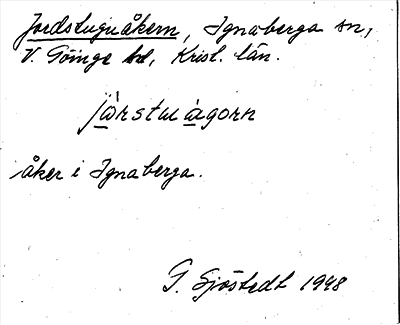 Jordstuguåkern, Ignaberga sn,
V. Göinge hd, Krist. län.
jàrstuàgorn
åker i Ignaberga.
G. Sjöstedt 1948